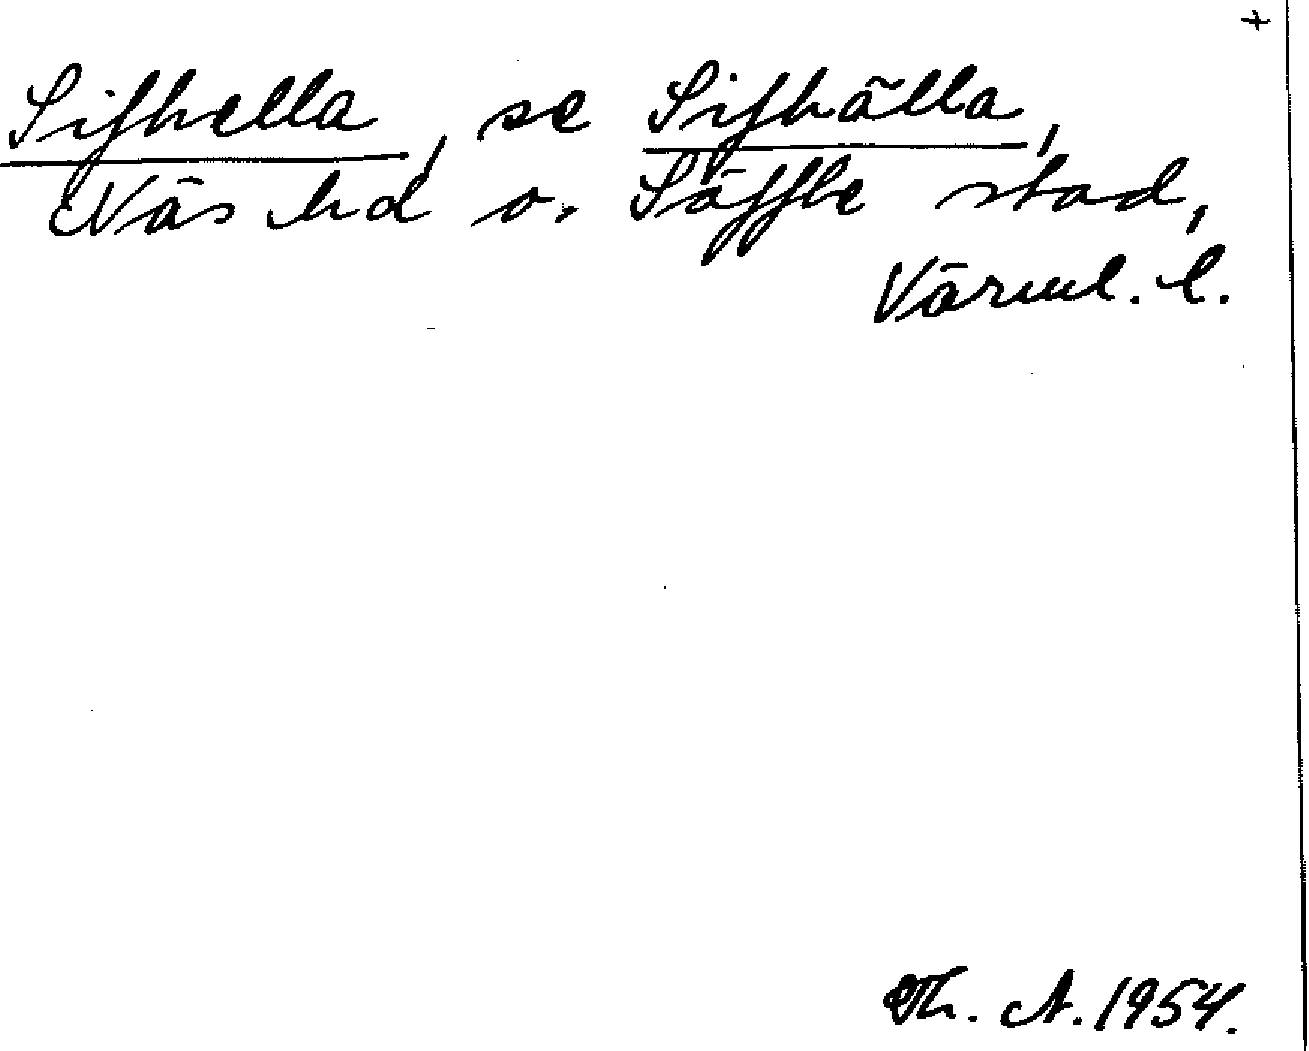 +
Sifhella, se Sifhälla,
Näs hd o. Säffle stad,
Värml. l.
Th. A. 1954.